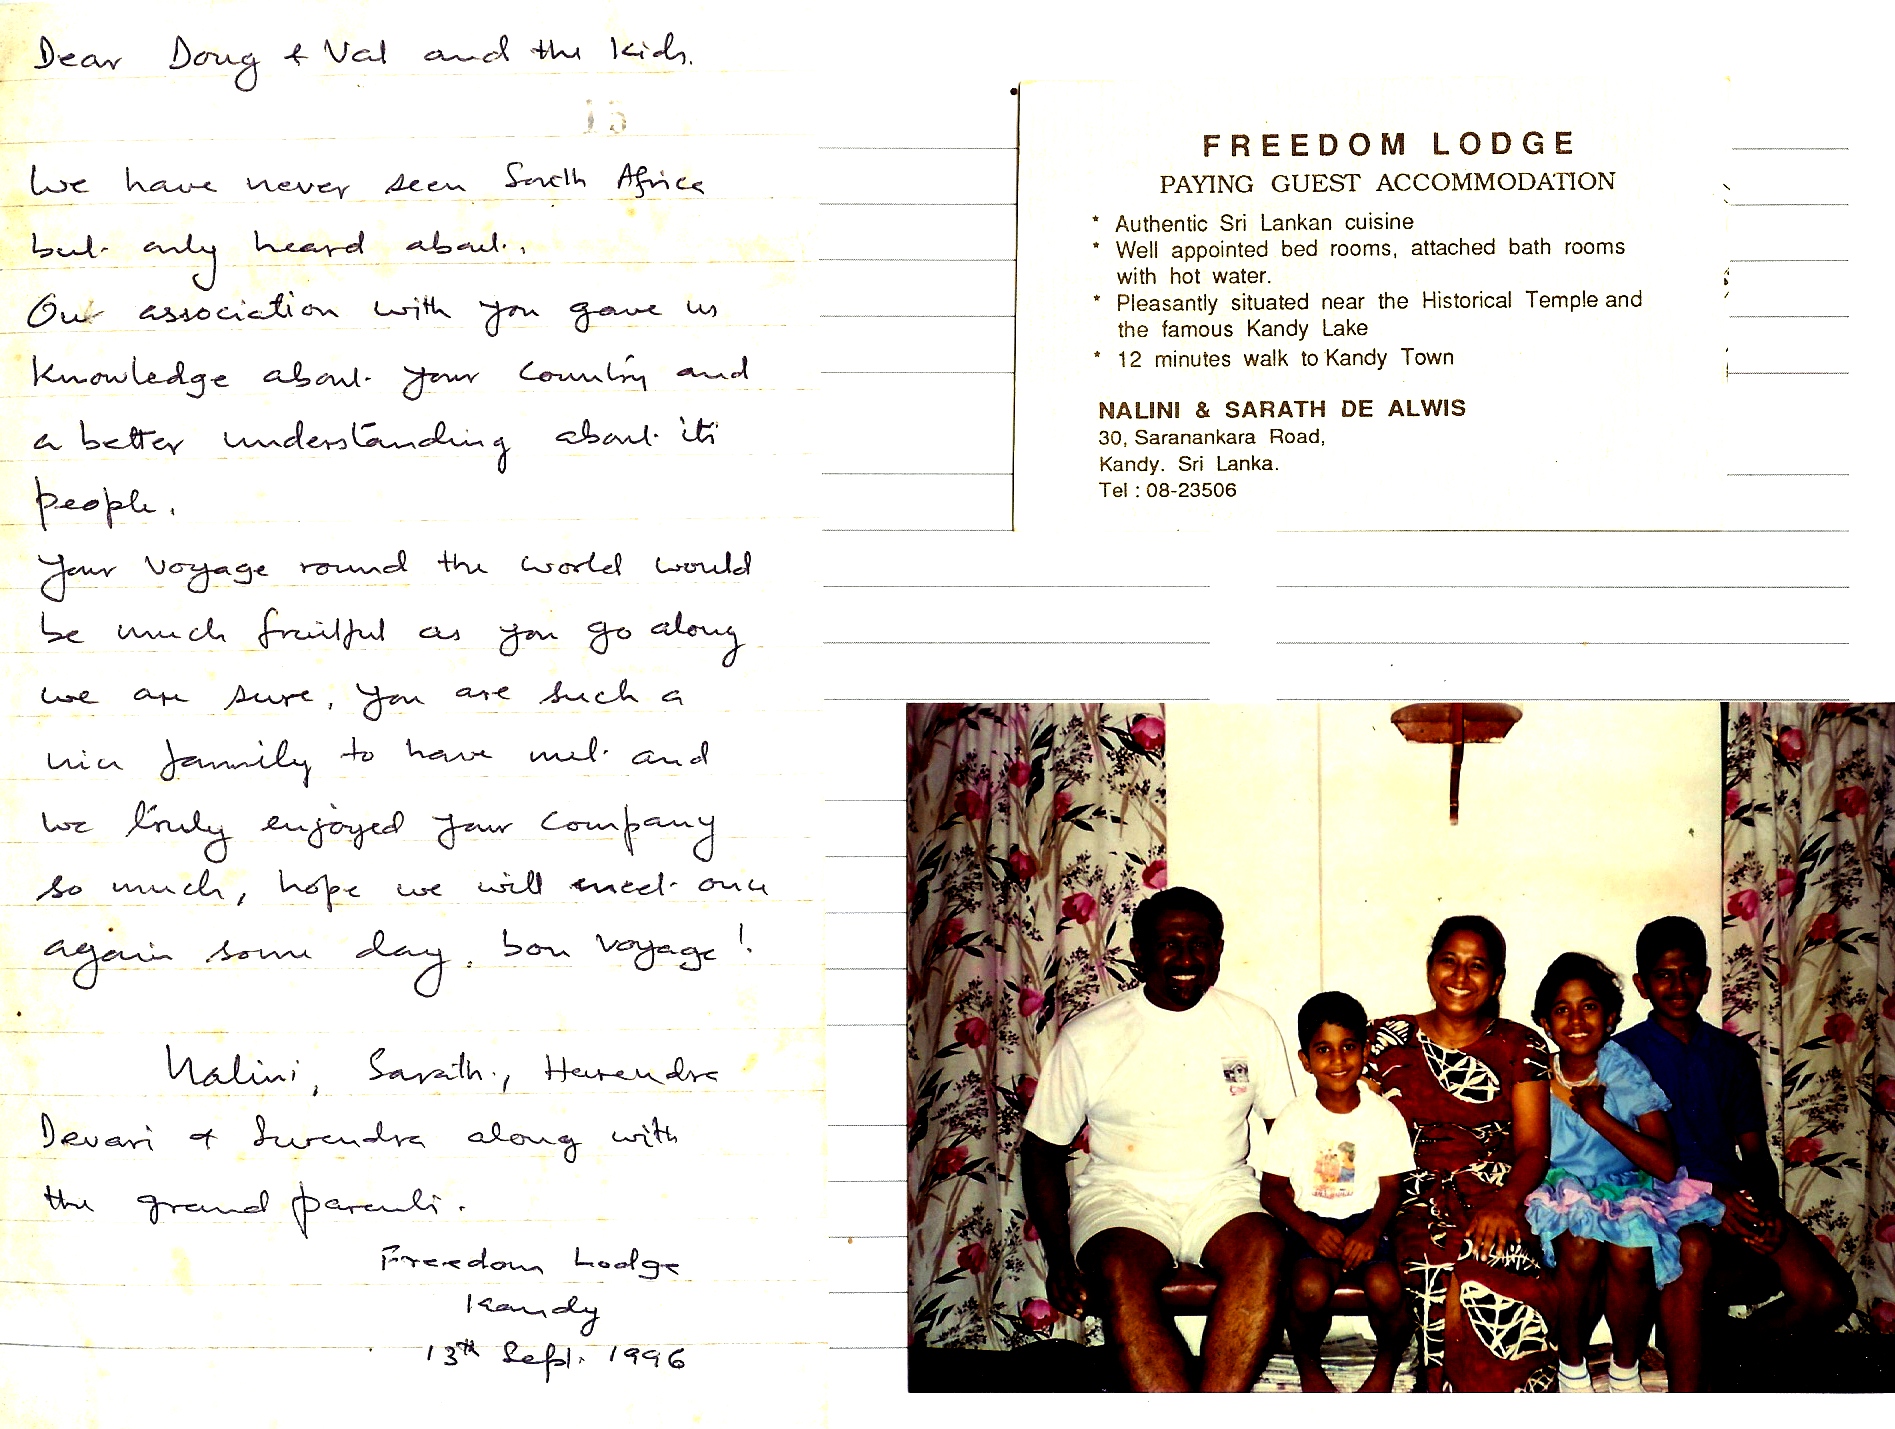 Dear Doug & Val and the kids.
15
We have never seen South Africa
but only heard about.
Our association with you gave us
knowledge about your country and
a better understanding about its
people.
Your voyage round the world would
be much fruitful as you go along
we are sure, you are such a
nice fammily to have met and
we truly enjoyed your company
so much, hope we will meet once
again some day, bon voyage!
Nalini, Sarath, Harendra
Devari & Surendra along with
the grand parents.
Freedom Lodge
Kandy
13th Sept. 1996
FREEDOM LODGE
PAYING GUEST ACCOMMODATION
* Authentic Sri Lankan cuisine
* Well appointed bed rooms, attached bath rooms
with hot water.
* Pleasantly situated near the Historical Temple and
the famous Kandy Lake
* 12 minutes walk to Kandy Town
NALINI & SARATH DE ALWIS
30, Saranankara Road,
Kandy. Sri Lanka.
Tel : 08-23506